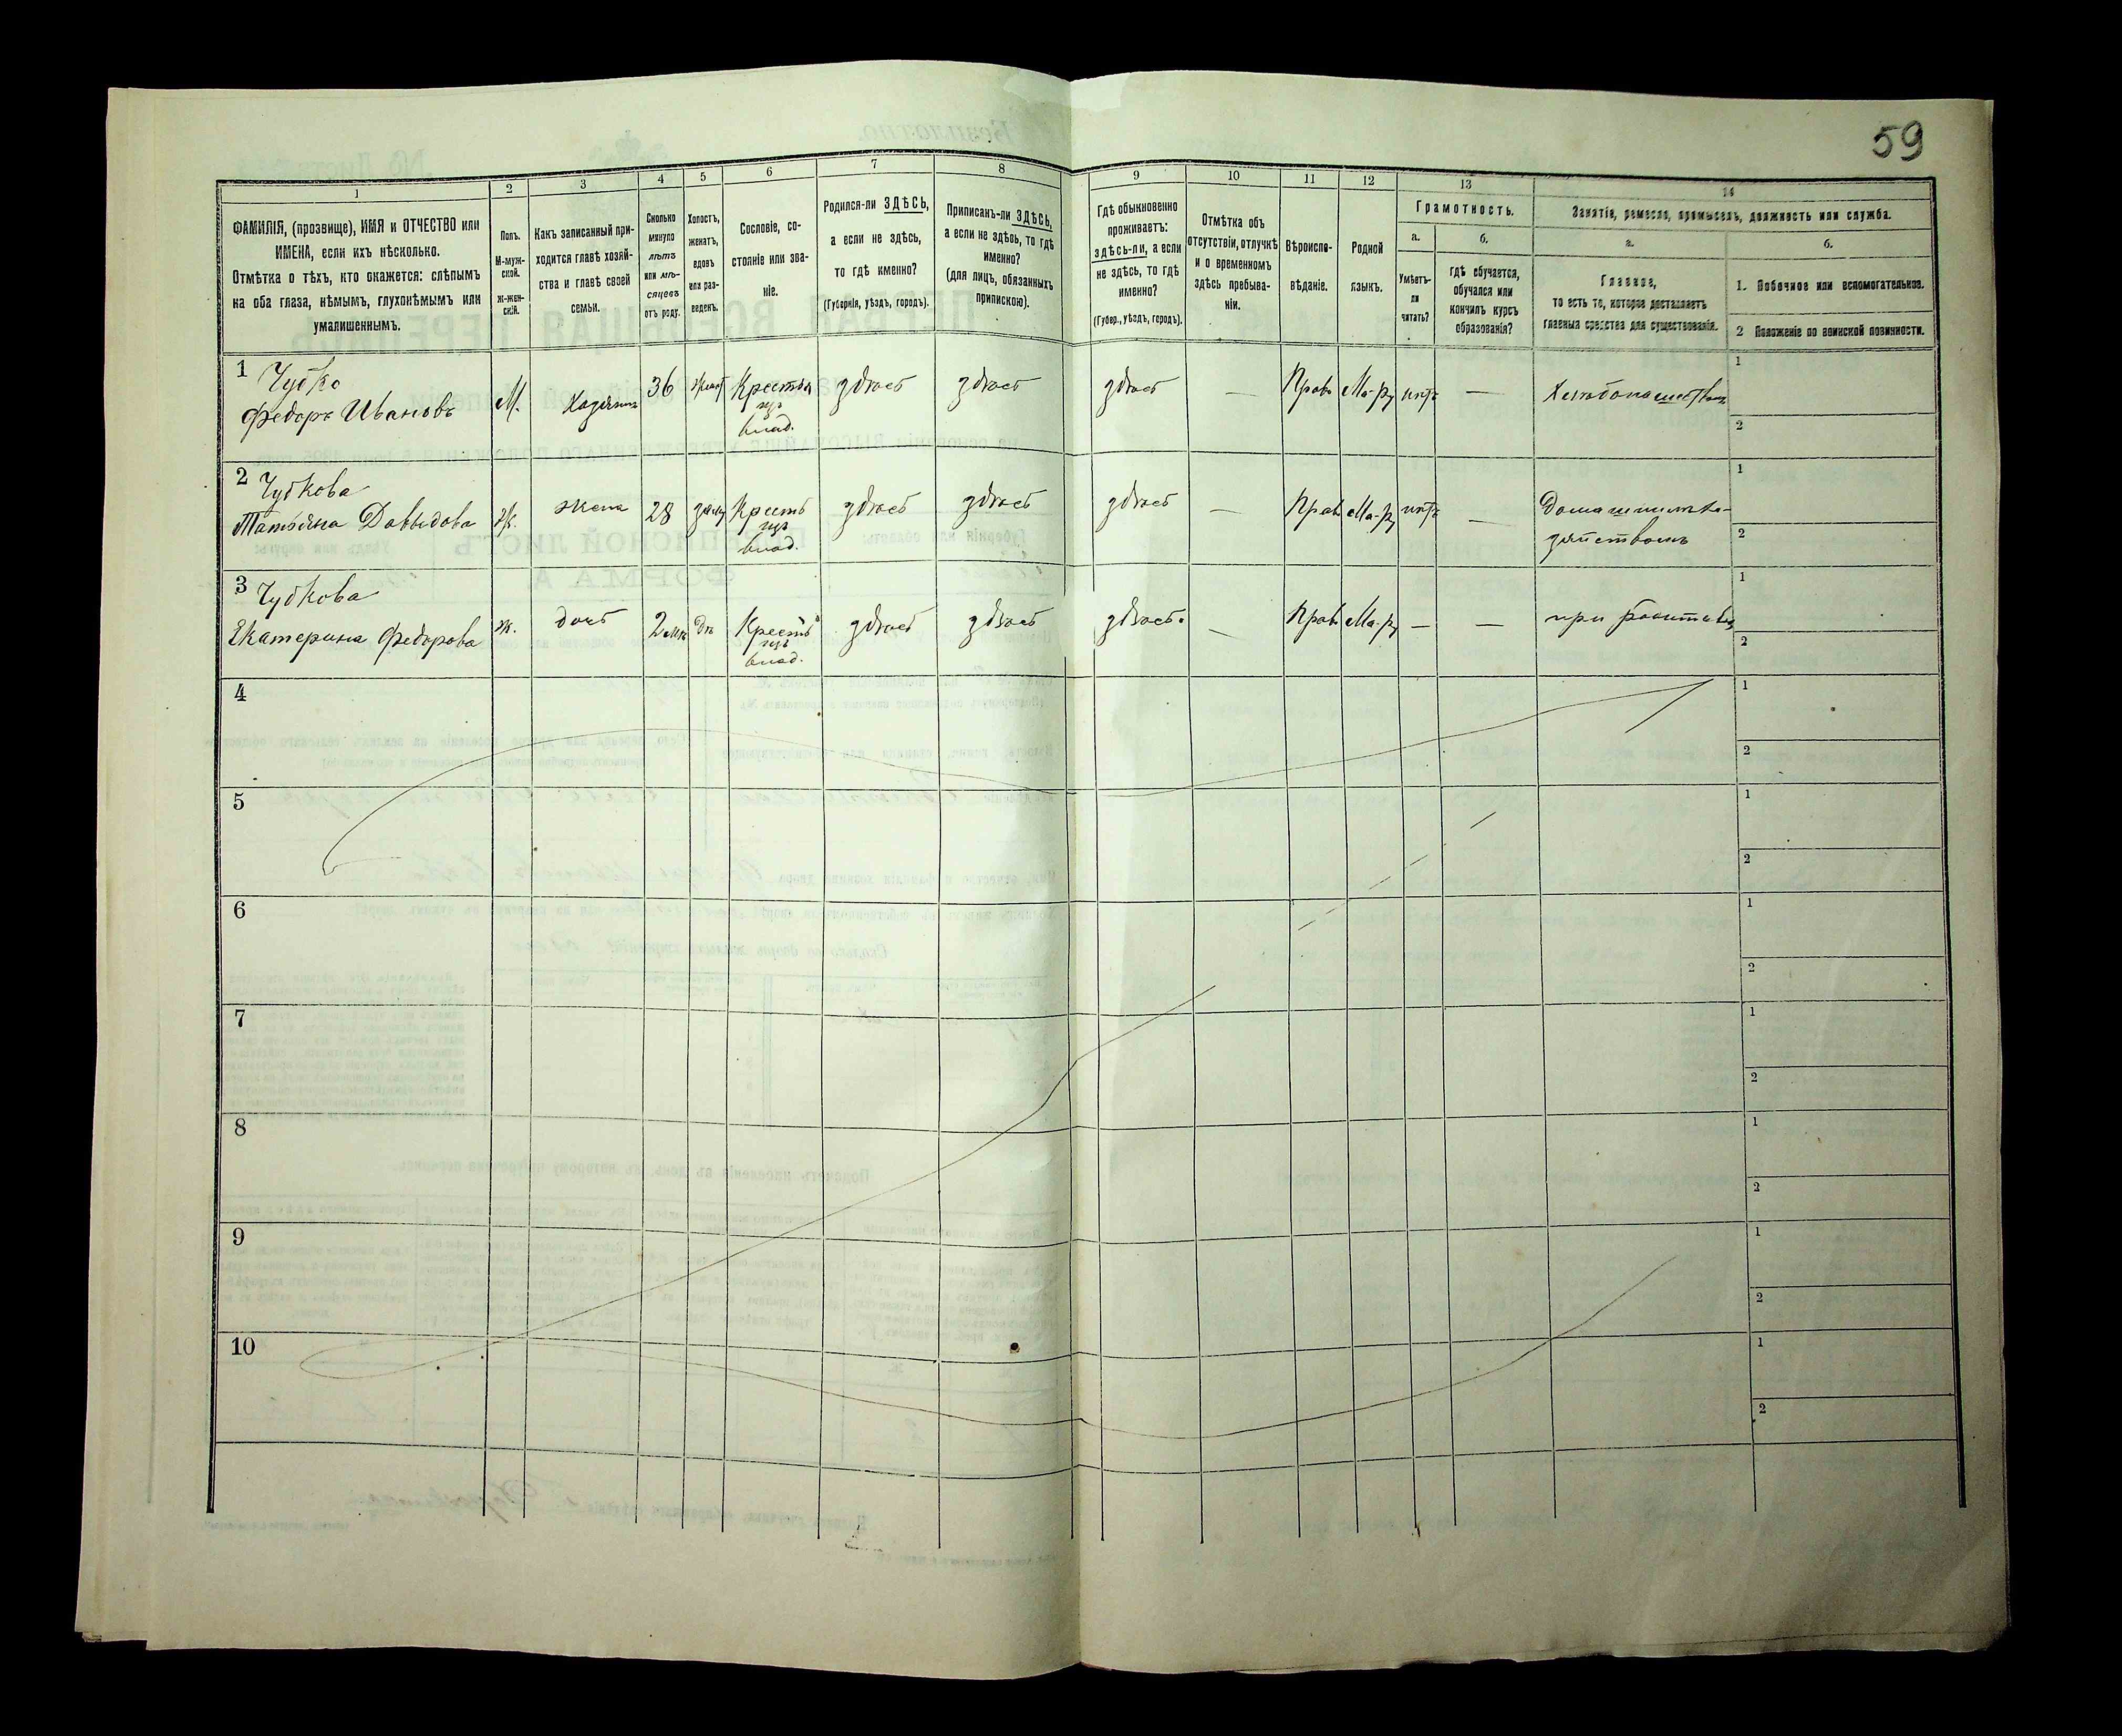 59
1 2 3 4 5 6 7 8 9 10 11 12 13 14
ФАМИЛІЯ, (прозвище), ИМЯ и ОТЧЕСТВО или
ИМЕНА, если ихъ нѣсколько.
Отмѣтка о тѣхъ, кто окажется: слѣпымъ
на оба глаза, нѣмымъ, глухонѣмымъ или
умалишеннымъ.
Полъ.
М-муж-
ской.
Ж-жен-
скій.
Какъ записанный при-
ходится главѣ хозяй-
ства и главѣ своей
семьи.
Сколько
минуло
лѣтъ
или мѣ-
сяцевъ
отъ роду.
Холостъ,
женатъ,
вдовъ
или раз-
веденъ.
Сословіе, со-
стояніе или зва-
ніе.
Родился-ли ЗДѢСЬ,
а если не здѣсь,
то гдѣ именно?
(Губернія, уѣздъ, городъ).
Приписанъ-ли ЗДѢСЬ,
а если не здѣсь, то гдѣ
именно?
(для лицъ, обязанныхъ
припискою).
Гдѣ обыкновенно
проживаетъ:
здѣсь-ли, а если
не здѣсь, то гдѣ
именно?
(Губер., уѣздъ, городъ).
Отмѣтка объ
отсутствіи, отлучкѣ
и о временномъ
здѣсь пребыва-
ніи.
Вѣроиспо-
вѣданіе.
Родной
языкъ.
Грамотность.
а.
Умѣетъ-
ли
читать?
б.
гдѣ обучается,
обучался или
кончилъ курсъ
образованія?
Занятіе, ремесло, промыселъ, должность или служба.
а.
Главное,
то есть то, которое доставляетъ
главныя средства для существованія.
б.
1. Побочное или вспомогательное.
2 Положеніе по воинской повинности.
1 Чубко
Федоръ Ивановъ
М.
Хозяинъ
36
Крестья
изъ
влад.
здѣсь
здѣсь
здѣсь
—
Право
Ма-ру
нѣтъ
—
1
2
2 Чубкова
Татьяна Давыдова
Ж.
жена
28
Кресть
изъ
влад.
здѣсь
здѣсь
здѣсь
—
Прав
Ма-ру
нѣтъ
—
Домашнимъ хо-
зяйствомъ
1
2
3 Чубкова
Екатерина Федорова
Ж.
дочь
2
Кресть
изъ
влад.
здѣсь
здѣсь
здѣсь.
—
Прав
Ма-ру
—
—
при
1
2
4
1
2
5
1
2
6
1
2
7
1
2
8
1
2
9
1
2
10
1
2